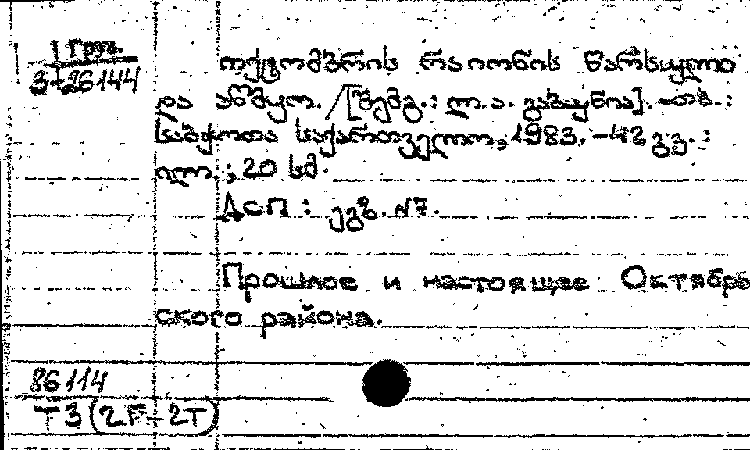 Груз.
3-26144
ოქტომბრის რაიონის წარსული
და აწმყო. /[შემდგ.: ლ.ა. გაბუნია]. –თბ.:
საბჭოთა საქართველო, 1983. – 42 გვ.:
ილ.; 20 სმ.
ДСП: ეგზ. N7.
Прошлое и настоящее Октябрь
ского района.
86114
Т3(2Г-2Т)